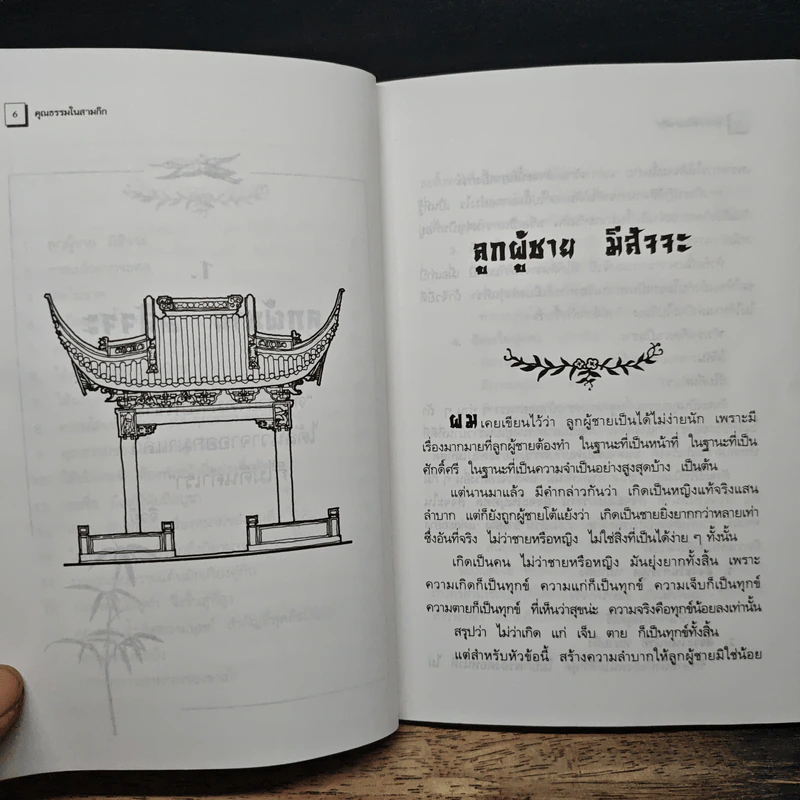 6 คุณธรรมในสามก๊ก
ลูกผู้ชาย มีสัจจะ
ผมเคยเขียนไว้ว่า ลูกผู้ชายเป็นได้ไม่ง่ายนัก เพราะมี
เรื่องมากมายที่ลูกผู้ชายต้องทำ ในฐานะที่เป็นหน้าที่ ในฐานะที่เป็น
ศักดิ์ศรี ในฐานะที่เป็นความจำเป็นอย่างสูงสุดบ้าง เป็นต้น
แต่นานมาแล้ว มีคำกล่าวกันว่า เกิดเป็นหญิงแท้จริงแสน
ลำบาก แต่ก็ยังถูกผู้ชายโต้แย้งว่า เกิดเป็นชายยิ่งยากกว่าหลายเท่า
ซึ่งอันที่จริง ไม่ว่าชายหรือหญิง ไม่ใช่สิ่งที่เป็นได้ง่าย ๆ ทั้งนั้น
เกิดเป็นคน ไม่ว่าชายหรือหญิง มันยุ่งยากทั้งสิ้น เพราะ
ความเกิดก็เป็นทุกข์ ความแก่ก็เป็นทุกข์ ความเจ็บก็เป็นทุกข์
ความตายก็เป็นทุกข์ ที่เห็นว่าสุขน่ะ ความจริงคือทุกข์น้อยลงเท่านั้น
สรุปว่า ไม่ว่าเกิด แก่ เจ็บ ตาย ก็เป็นทุกข์ทั้งสิ้น
แต่สำหรับหัวข้อนี้ สร้างความลำบากให้ลูกผู้ชายมิใช่น้อย